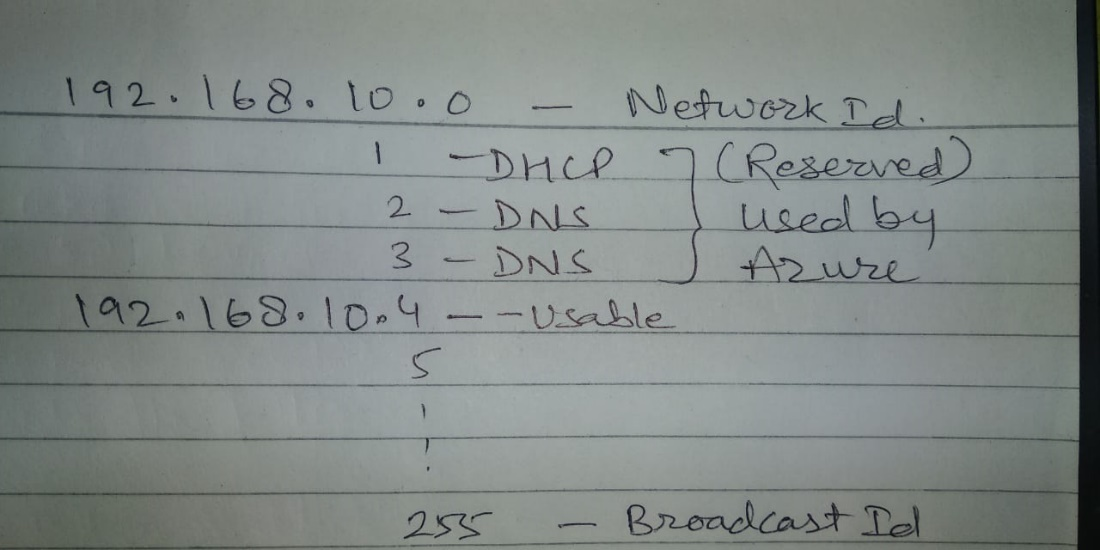 192.168.10.0 — Network Id.
1 — DHCP (Reserved)
2 — DNS used by
3 — DNS Azure
192.168.10.4 — - Usable
5
255 — Broadcast Id